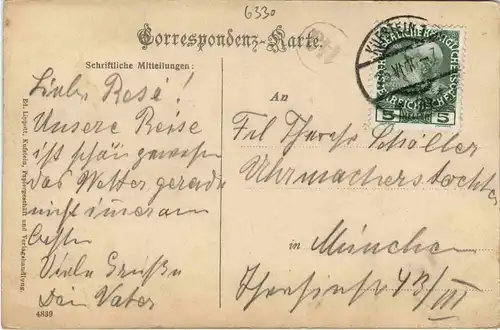 6330
Correspondenz-Karte.
Schriftliche Mitteilungen:
Liebe Resé!
Unsere Reise
ist schön gewesen
das Wetter gerade
nicht immer am
besten
Viele Grüße
Dein Vater
4839
Ed. Lippott, Kufstein, Papiergeschäft und Verlagshandlung.
An
Frl Therese Schöller
Uhrmacherstochter
in München
43/III
KUFSTEIN
5 5